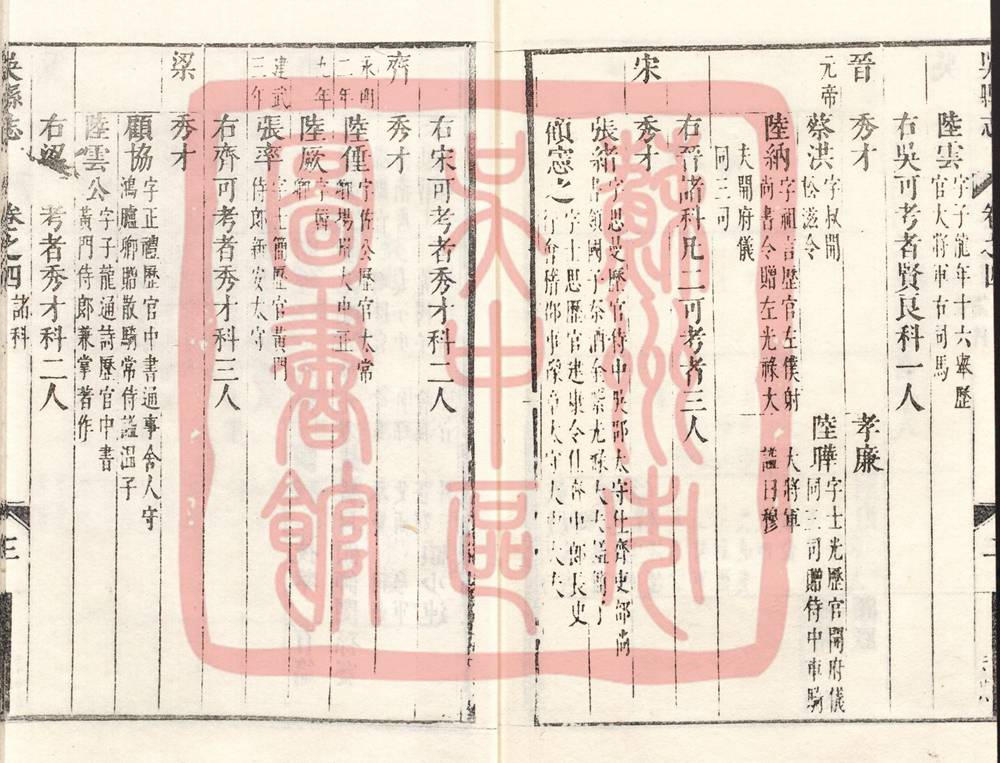 陸雲字子龍年十六舉歷官大將軍右司馬
右吳可考者賢良科一人
晉
秀才
孝廉
元帝
蔡洪字叔開松滋令
陸曄字士光歷官開府儀同三司贈侍中車騎大將軍
陸納字祖言歷官左僕射尚書令贈左光祿大夫開府儀同三司
諡曰穆
右晉諸科凡二可考者三人
宋
秀才
張緒字思曼歷官侍中吳郡太守仕齊吏部尚書領國子祭酒
顧憲之字士思歷官建康令仕齊中郎長史行會稽郡事豫章太守太中大夫
右宋可考者秀才科二人
齊
秀才
永明二年
陸倕字佐公歷官太常卿揚州大中正
九年
陸厥字韓卿
建武三年
張率字士簡歷官黃門侍郎新安太守
右齊可考者秀才科三人
梁
秀才
顧協字正禮歷官中書通事舍人守鴻臚卿贈散騎常侍諡溫子
陸雲公字子龍通詩歷官中書黃門侍郎兼掌著作
右梁可考者秀才科二人
吳縣志
卷之四
諸科
三
蘇州市吳中區圖書館